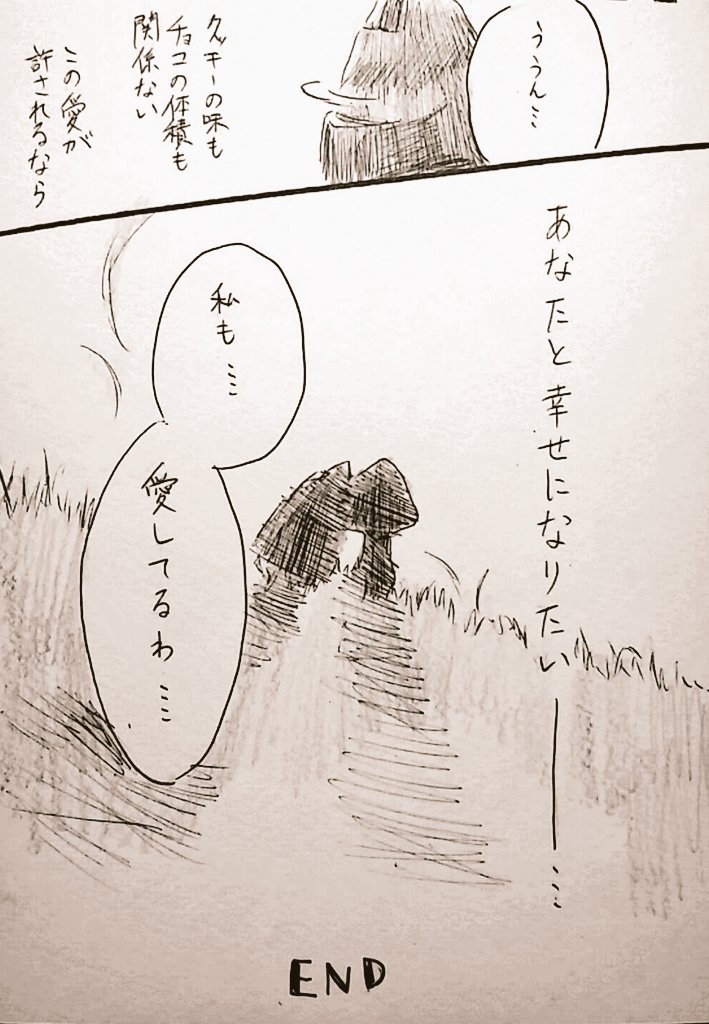 ううん…
クッキーの味も
チョコの体積も
関係ない
この愛が
許されるなら
あなたと幸せになりたい――…
私も…
愛してるわ…
END